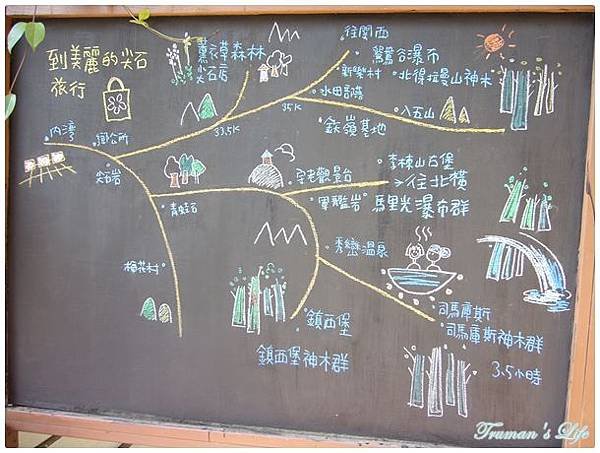 到美麗的尖石
旅行
薰衣草森林
尖石店
往關西
鴛鴦谷瀑布
新樂村
北得拉曼山神木
水田部落
35K
八五山
33.5K
鎮嶺基地
內灣
鄉公所
尖石岩
李棟山古堡
宇老觀景台
往北橫
軍艦岩
馬里光瀑布群
青蛙石
秀巒溫泉
梅花村
鎮西堡
鎮西堡神木群
司馬庫斯
司馬庫斯神木群
3.5小時
Truman's Life